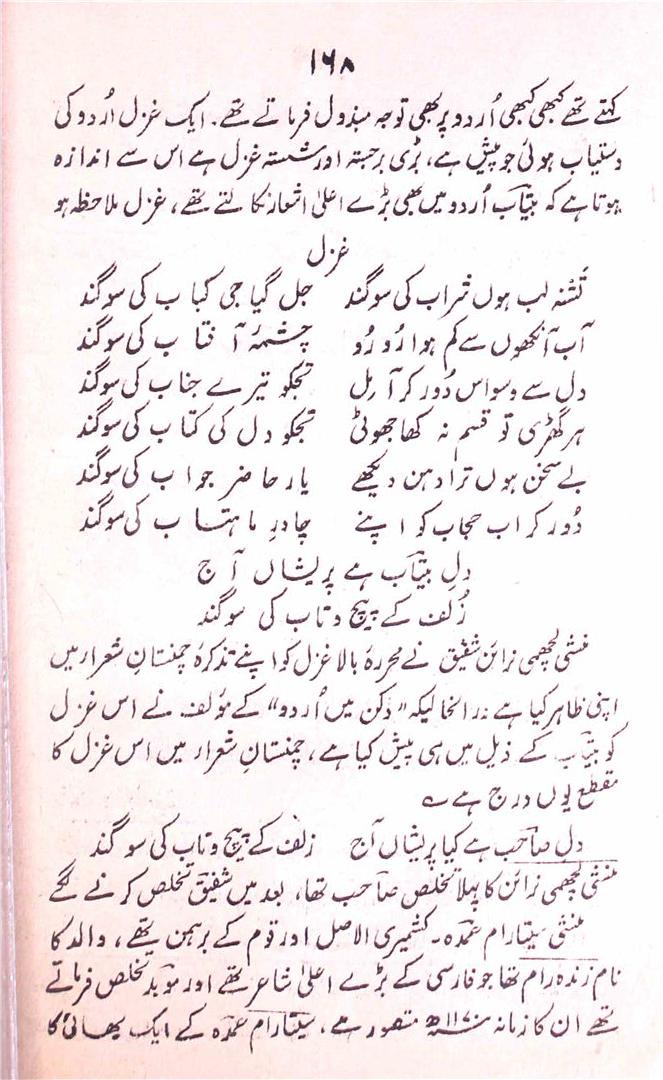 ۱۶۸
کہتے تھے کبھی کبھی اُردو پر بھی توجہ مبذول فرماتے تھے۔ ایک غزل اُردو کی
دستیاب ہوئی جو پیش ہے، بڑی برجستہ اور شستہ غزل ہے اس سے اندازہ
ہوتا ہے کہ بیتاؔب اُردو میں بھی بڑے اعلیٰ اشعار نکالتے تھے، غزل ملاحظہ ہو
غزل
تشنہ لب ہوں شراب کی سوگند جل گیا جی کباب کی سوگند
آب آنکھوں سے کم ہوا رُو رُو چشمۂ آفتاب کی سوگند
دل سے وسواس دُور کر آ مل تجکو تیرے جناب کی سوگند
ہر گھڑی تو قسم نہ کھا جھوٹی تجکو دل کی کتاب کی سوگند
بے سخن ہوں ترا دہن دیکھے یار حاضر جواب کی سوگند
دُور کر اب حجاب کو اپنے چادرِ ماہتاب کی سوگند
دلِ بیتاؔب ہے پریشاں آج
زُلف کے پیچ و تاب کی سوگند
منشی لچھمی نرائن شفیقؔ نے محررۂ بالا غزل کو اپنے تذکرۂ چمنستانِ شعراء میں
اپنی ظاہر کیا ہے در انحالیکہ "دکن میں اُردو" کے مؤلف نے اس غزل
کو بیتاؔب کے ذیل میں ہی پیش کیا ہے، چمنستانِ شعراء میں اس غزل کا
مقطع یوں درج ہے ؎
دل صاحبؔ ہے کیا پریشاں آج زلف کے پیچ و تاب کی سوگند
منشی لچھمی نرائن کا پہلا تخلص صاحبؔ تھا، بعد میں شفیقؔ تخلص کرنے لگے
منشی سیتارام عمدہؔ۔ کشمیری الاصل اور قوم کے برہمن تھے، والد کا
نام زندہ رام تھا جو فارسی کے بڑے اعلیٰ شاعر تھے اور موبدؔ تخلص فرماتے
تھے ان کا زمانہ سنہ ۱۱۷۰ھ متصور ہے، سیتارام عمدہؔ کے ایک بھائی کا